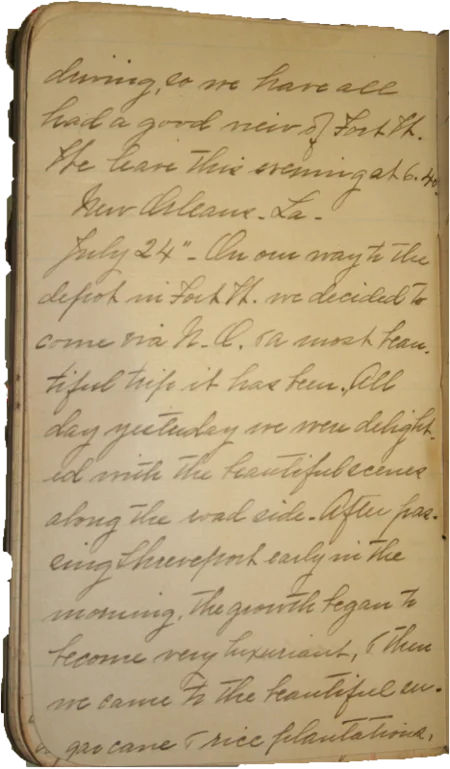 driving, so we have all
had a good view of Fort W.
We leave this evening at 6.40
New Orleans. La.
July 24" - On our way to the
depot in Fort W. we decided to
come via N. O. & a most beau-
tiful trip it has been. All
day yesterday we were delight-
ed with the beautiful scenes
along the road side. After pas-
sing Shreveport early in the
morning, the growth began to
become very luxuriant, & then
we came to the beautiful su-
gar cane & rice plantations,